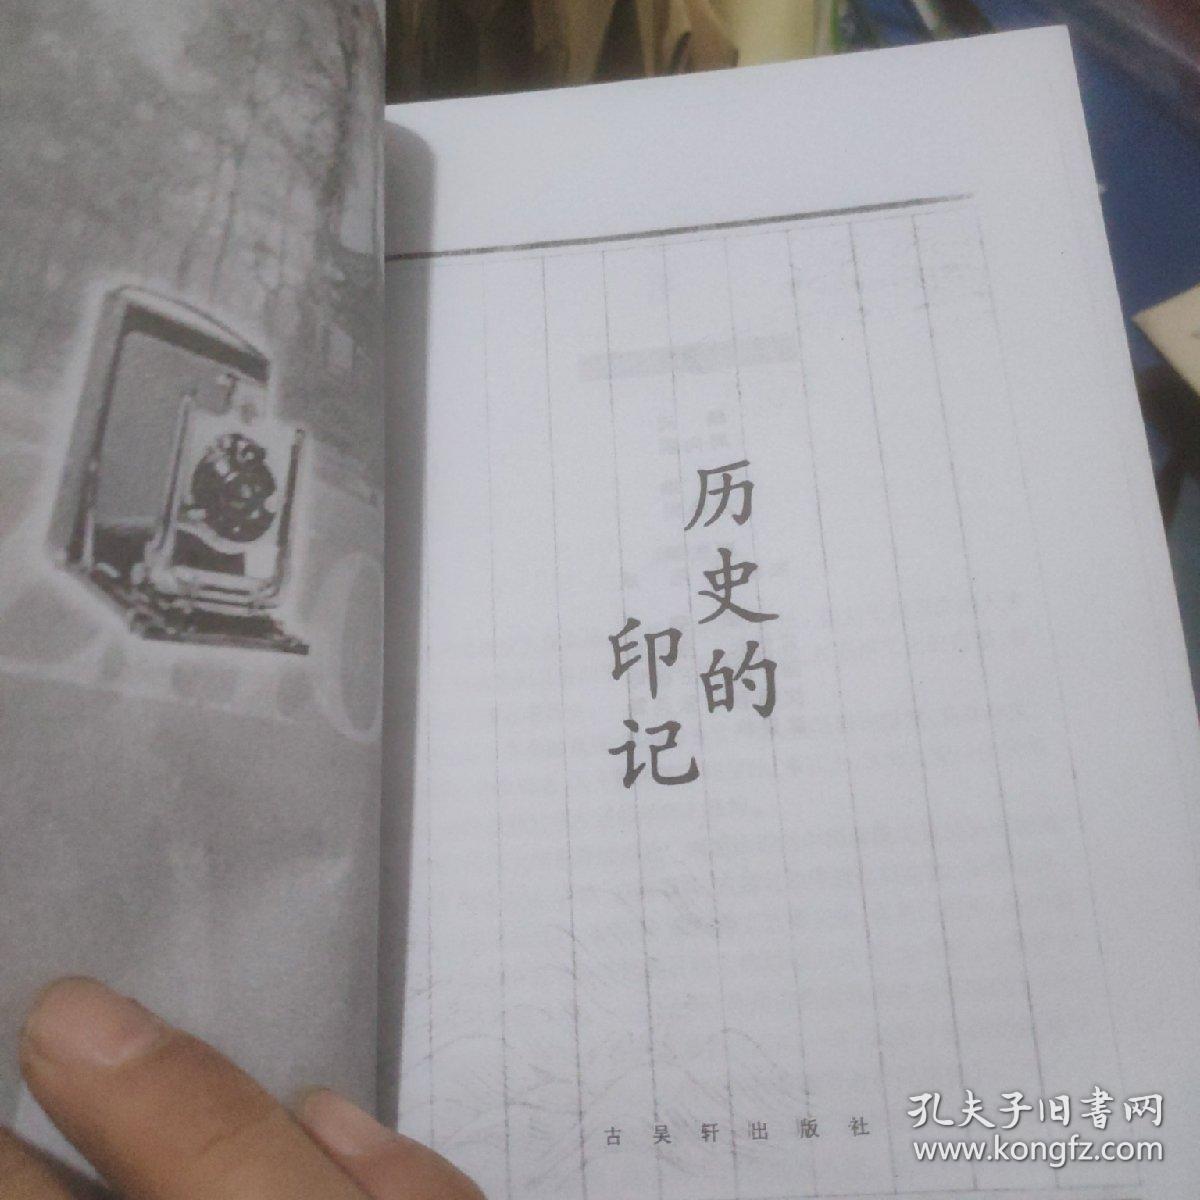 历史的
印记
古吴轩出版社
孔夫子旧書网
www.kongfz.com